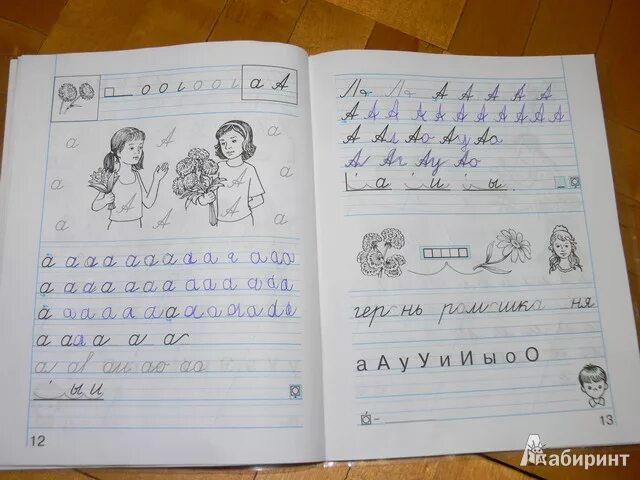 о о і о о і а А
а А а
а А А а
а А а
а а а а а а а а ч а аа
а а а а а а а а а а а а
а а а а а а а а а а а а а
а аа а а а
а
ы и
12
А А А А А
А А А А А А А А А А
А Ал Ао Ау Ао
А Ау Ао
а и ы
гер нь ромашка ня
а А у У и И ы о О
13
Лабиринт